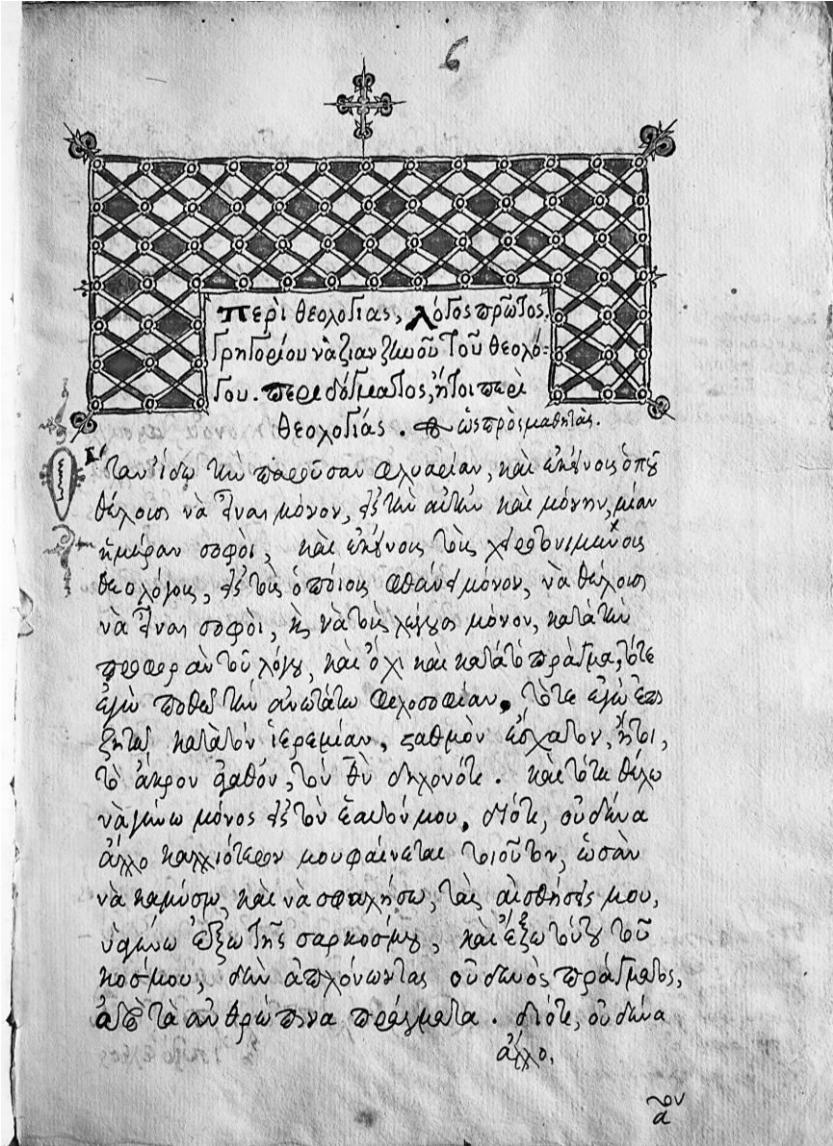 6
Περὶ θεολογίας, λόγος πρῶτος.
Γρηγορίου ναζιανζηνοῦ τοῦ θεολό-
γου. περὶ δόγματος, ἤτοι περὶ
θεολογίας. ὡς πρὸς μαθητάς.
Ὅταν ἴδω τὴν παροῦσαν φλυαρίαν, καὶ ἐκείνοις ὁποῦ
θέλουσι νὰ ἦναι μόνον, εἰς τὴν αὐτὴν καὶ μόνην, μίαν
ἡμέραν σοφοὶ, καὶ ἐκείνους τοὺς χειροτονημένους
θεολόγους, εἰς τοὺς ὁποίους φθάνει μόνον, νὰ θέλουσι
νὰ ἦναι σοφοὶ, κ νὰ τοὺς λέγουσι μόνον, κατὰ τὴν
προφορὰν τοῦ λόγου, καὶ ὄχι καὶ κατὰ τὸ πρᾶγμα, τότε
ἐγὼ ποθῶ τὴν ἀνωτάτω φιλοσοφίαν, τότε ἐγὼ
ζητῶ κατὰ τὸν ἱερεμίαν, σταθμὸν ἔσχατον, ἤτοι,
τὸ ἄκρον ἀγαθὸν, τὸν θν δηλονότι. καὶ τότε θέλω
νὰ μείνω μόνος εἰς τὸν ἑαυτόν μου, διότι, οὐδένα
ἄλλο καλλιότερον μου φαίνεται τοιοῦτον, ὡσὰν
νὰ καμύσω, καὶ νὰ σφαλήσω, τὰς αἰσθήσεις μου,
νὰ μείνω ἔξω τῆς σαρκός μου, καὶ ἔξω τούτου τοῦ
κόσμου, δὲν ἁπλόνωντας οὐδενὸς πράγματος,
ἀπὸ τὰ ἀνθρώπινα πράγματα. διότι, οὐδένα
ἄλλο,
α ον